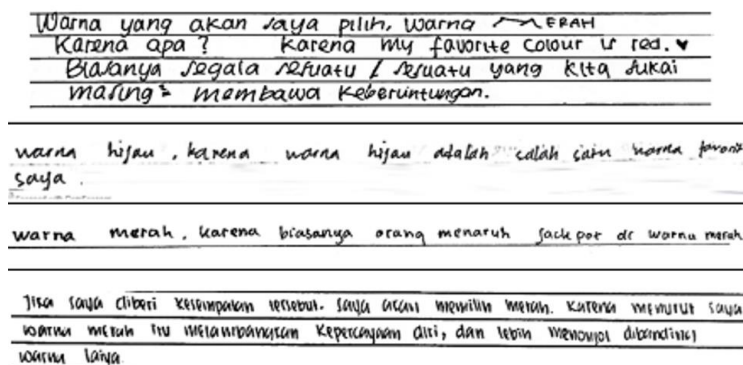 Warna yang akan saya pilih, warna MERAH
Karena apa? Karena my favorite colour is red. ♥
Biasanya segala sesuatu / sesuatu yang kita sukai
masing² membawa keberuntungan.
warna hijau, karena warna hijau adalah salah satu warna favorit
saya.
warna merah, karena biasanya orang menaruh jackpot di warna merah
Jika saya diberi kesempatan tersebut. saya akan memilih merah. Karena menurut saya
warna merah itu melambangkan kepercayaan diri, dan lebih menonjol dibanding
warna lainya